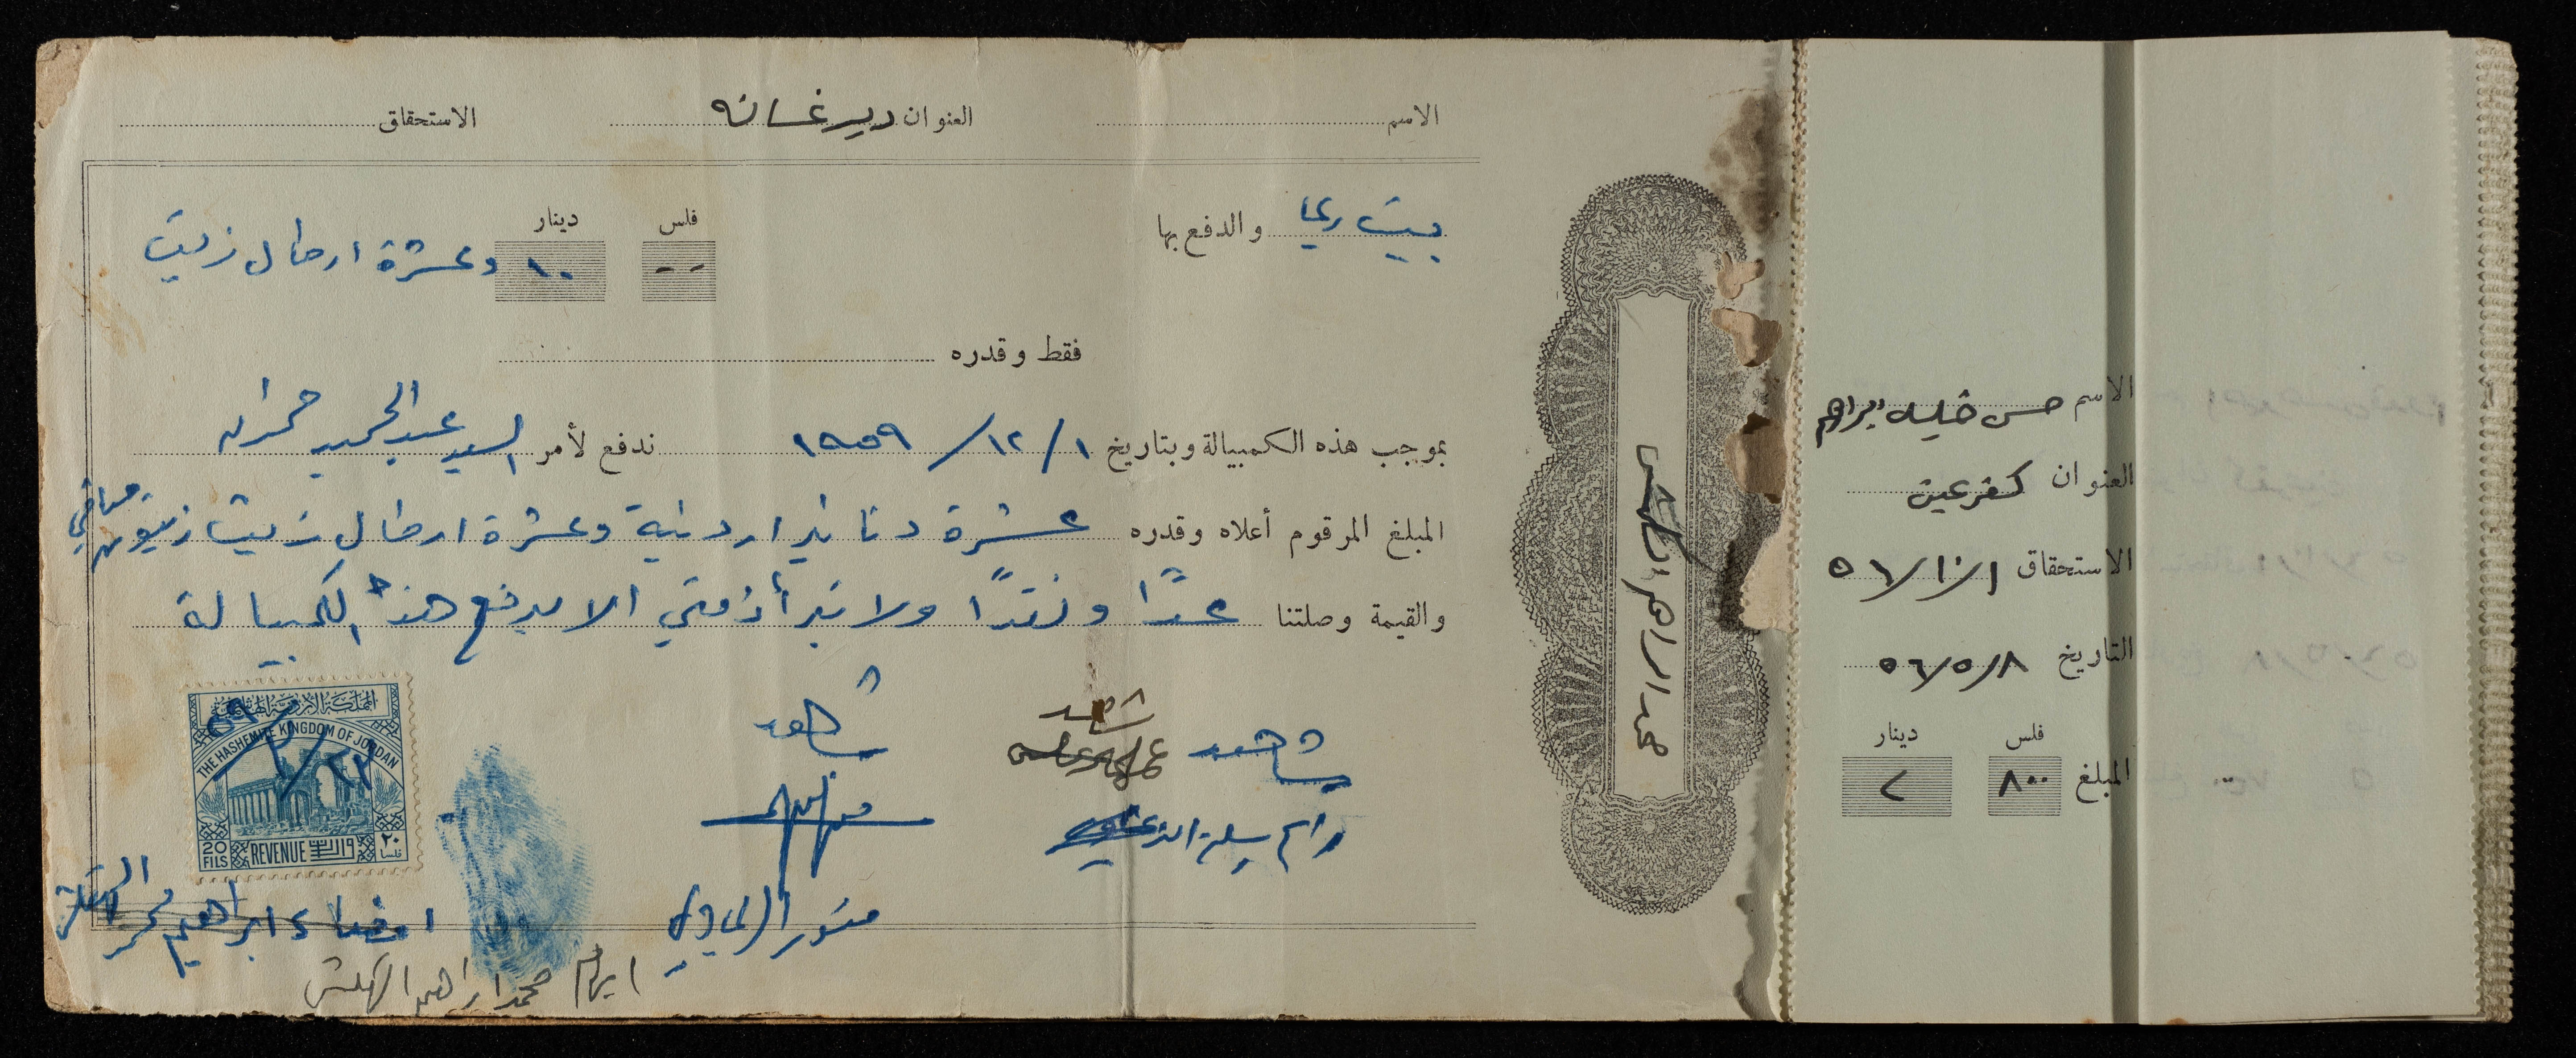 الاسم العنوان دير غسانه الاستحقاق
بيت ريما والدفع بها
فلس دينار
-- ١٠ وعشرة ارطال زيت
فقط وقدره
بموجب هذه الكمبيالة وبتاريخ ١/ ١٢/ ١٩٥٩ ندفع لأمر السيد عبد الحميد حمدان
المبلغ المرقوم أعلاه وقدره عشرة دنانير اردنية وعشرة ارطال زيت زيتون صافي
والقيمة وصلتنا عدًا ونقدًا ولا تبرأ ذمتي الا بدفع هذه الكمبيالة
شاهد شاهد شاهد
منور الريماوي
امضاء ابراهيم محمد
ابراهيم محمد ابراهيم
المملكة الأردنية الهاشمية
THE HASHEMITE KINGDOM OF JORDAN
٢٢/٣/٥٩
20 FILS REVENUE واردات ٢٠ فلسا
محمد ابراهيم
الاسم حسن خليل ابراهيم
العنوان كفر عين
الاستحقاق ١/١٠/٥٦
التاريخ ٨/٥/٥٦
فلس دينار
المبلغ ٨٠٠ ٢